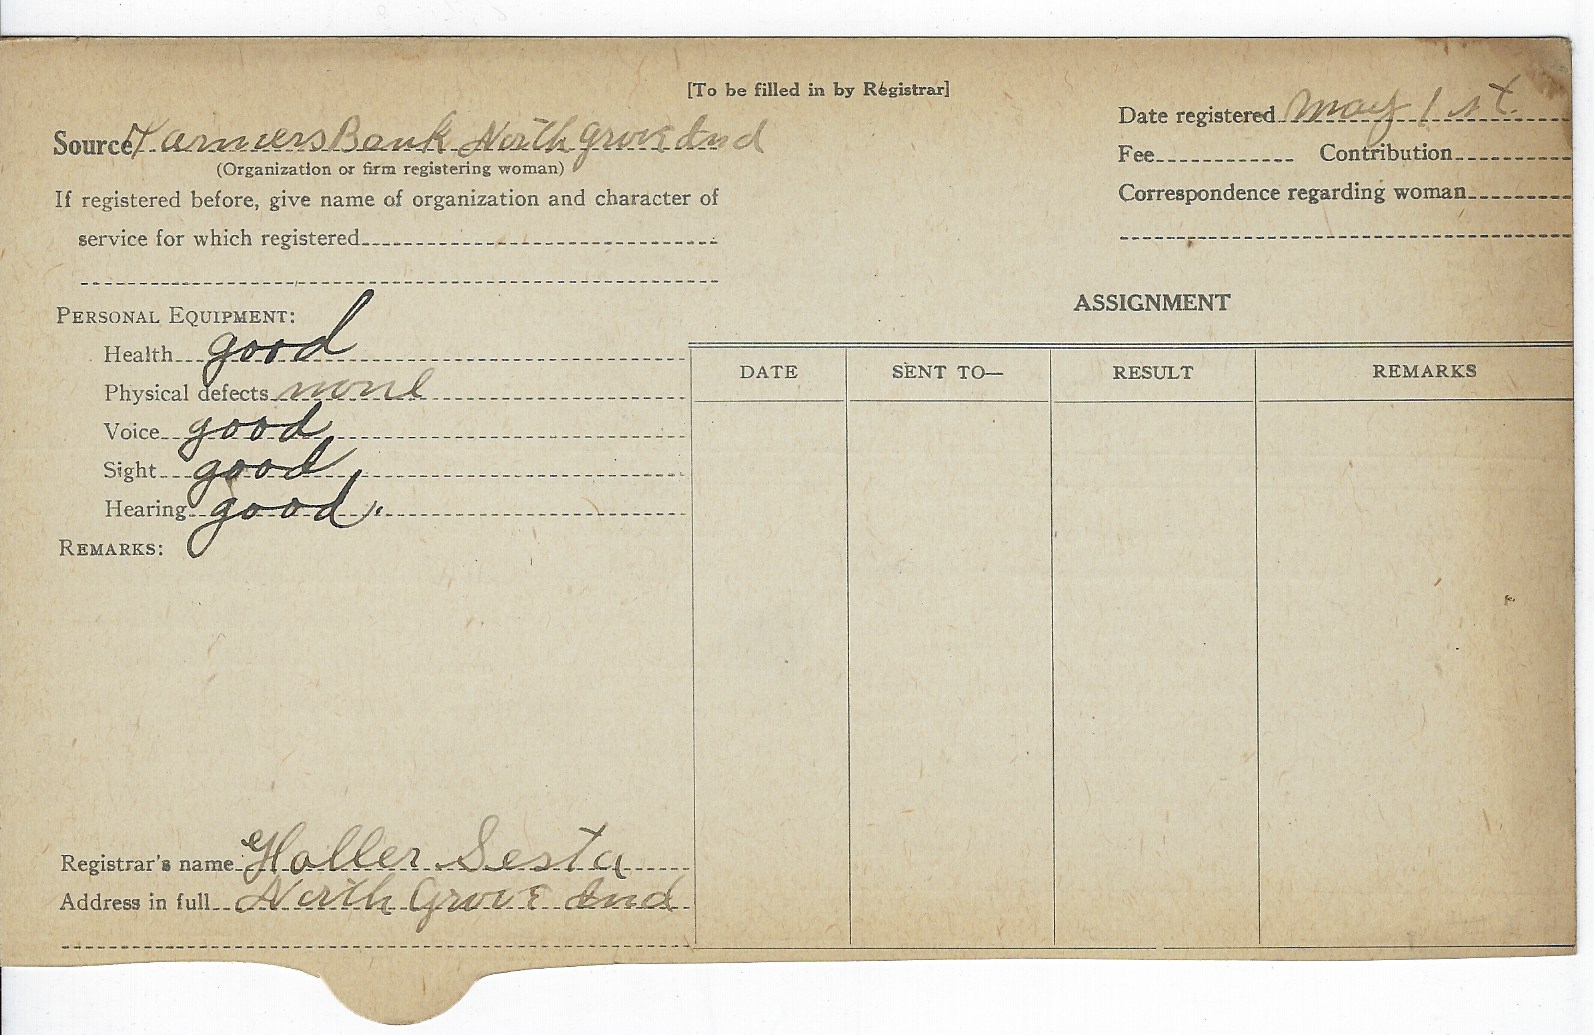 [To be filled in by Registrar]
Date registered May 1st.
Source Farmers Bank North Grove Ind
(Organization or firm registering woman)
Fee Contribution
If registered before, give name of organization and character of
Correspondence regarding woman
service for which registered
PERSONAL EQUIPMENT:
ASSIGNMENT
Health good
DATE SENT TO— RESULT REMARKS
Physical defects none
Voice good
Sight good
Hearing good.
REMARKS:
Registrar's name Haller Sesta
Address in full North Grove Ind